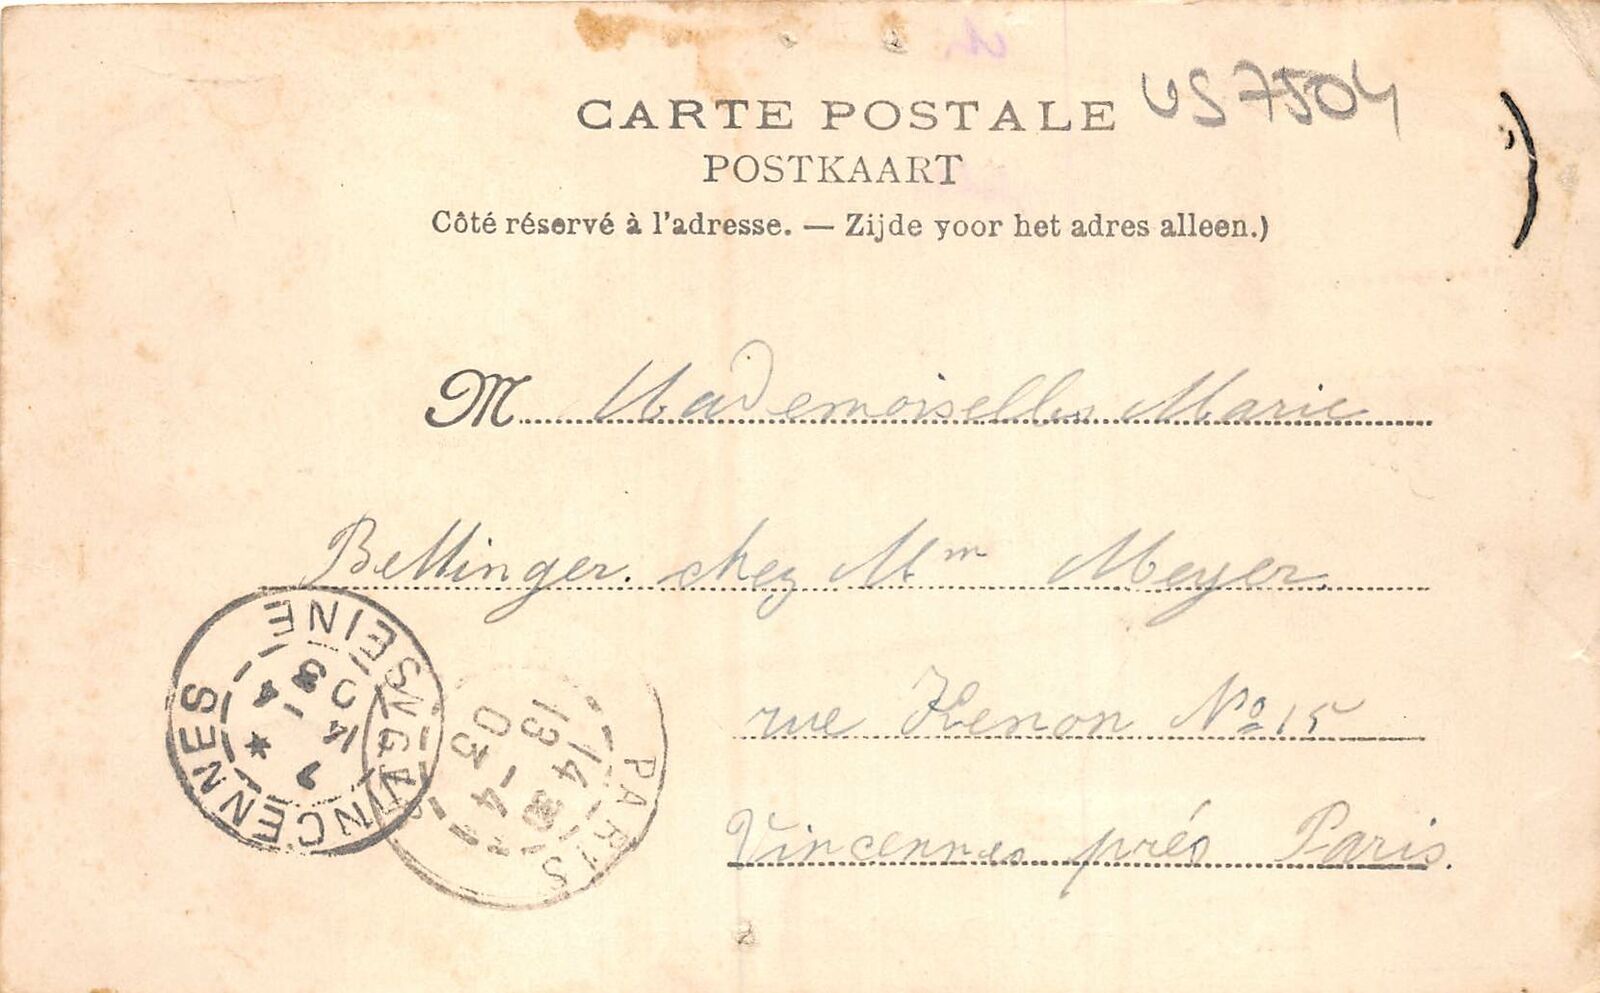 US7504
CARTE POSTALE
POSTKAART
Côté réservé à l'adresse. — Zijde voor het adres alleen.)
M Mademoiselle Marie
Bettinger. chez Mm Meyer.
rue Zenon No 15
Vincennes prés Paris.
VINCENNES SEINE
14
03
PARIS
13 - 4
03